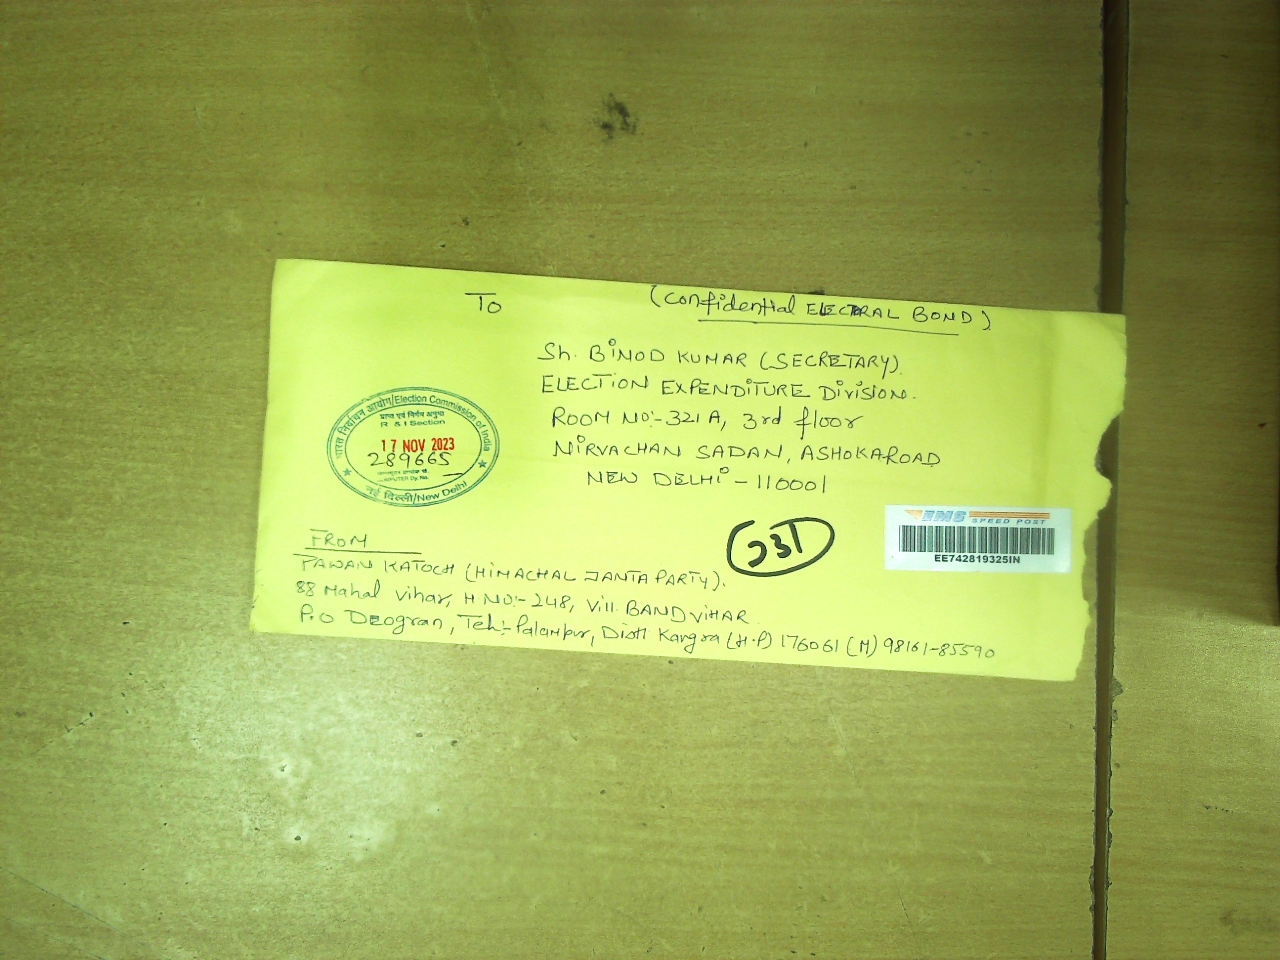 To
(Confidential ELECTRAL BOND)
Sh. BINOD KUMAR (SECRETARY).
ELECTION EXPENDITURE DIVISION.
ROOM NO:- 321A, 3rd floor
NIRVACHAN SADAN, ASHOKA ROAD
NEW DELHI - 110001
भारत निर्वाचन आयोग/Election Commission of India
R & I Section
17 NOV 2023
289665
COMPUTER Dy. No.
नई दिल्ली/New Delhi
EMS SPEED POST
EE742819325IN
FROM
PAWAN KATOCH (HIMACHAL JANTA PARTY).
88 Mahal Vihar, H.NO:- 248, Vill. BANDVIHAR
P.O Deogran, Teh:- Palampur, Distt Kangra (H.P) 176061 (M) 98161-85590